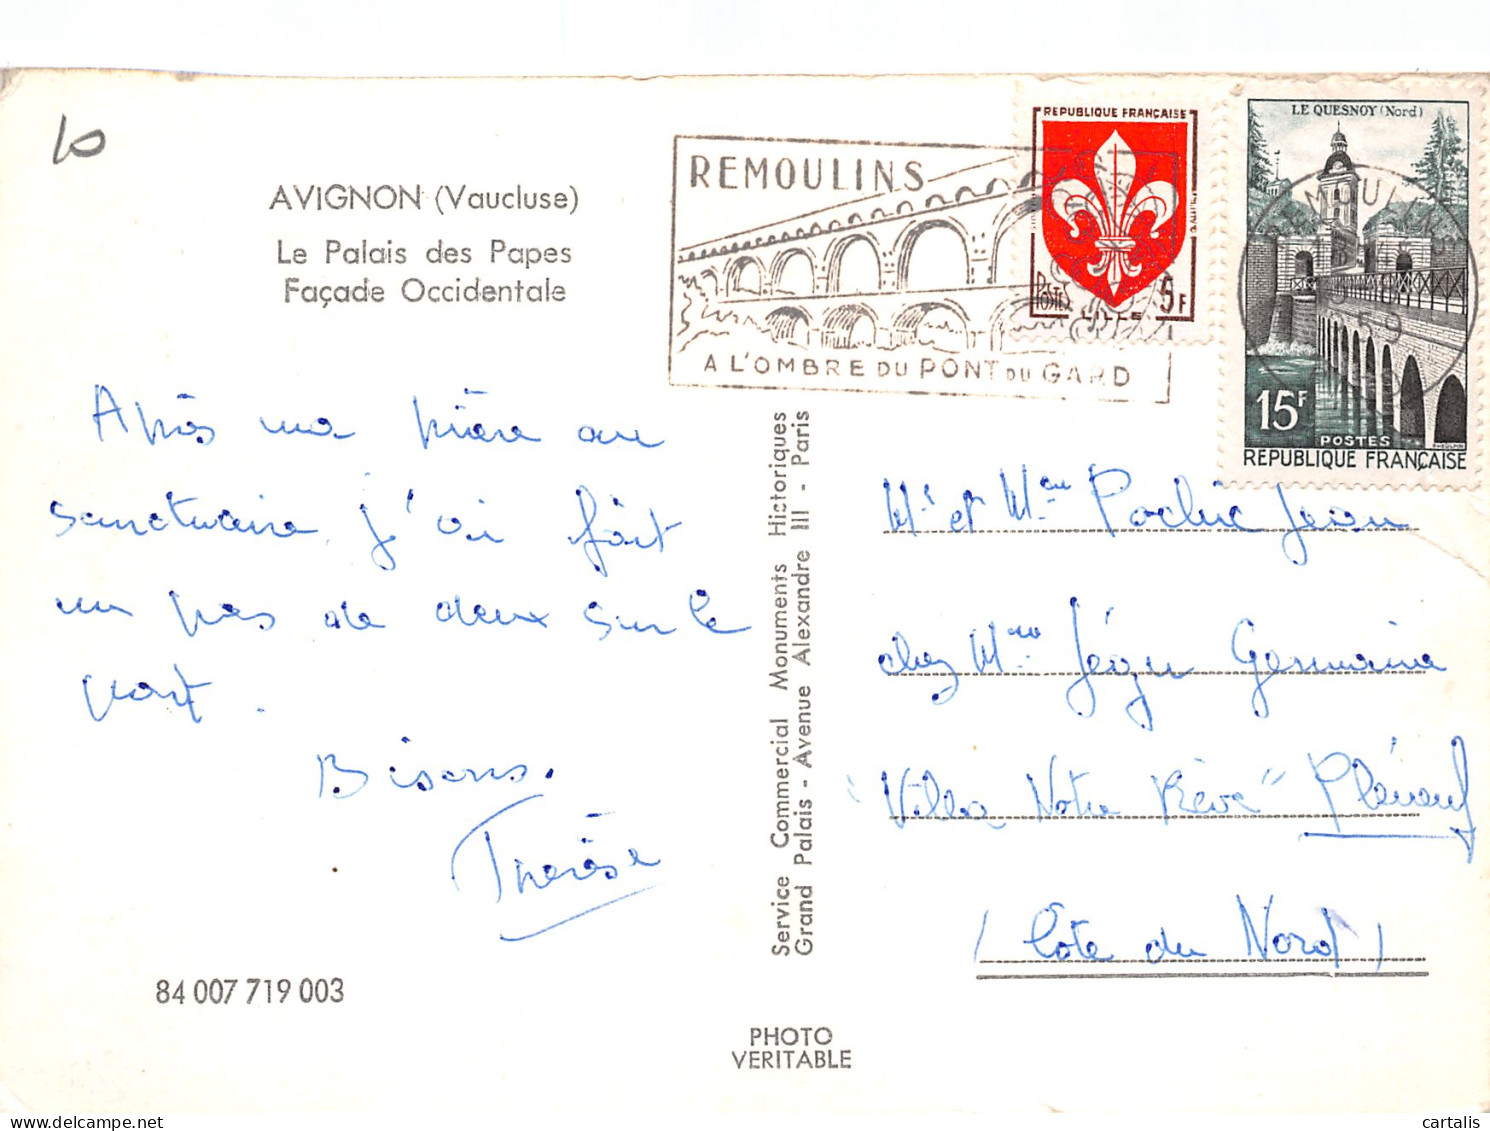 10
AVIGNON (Vaucluse)
Le Palais des Papes
Façade Occidentale
REMOULINS
A L'OMBRE DU PONT DU GARD
REPUBLIQUE FRANÇAISE
POSTES
5F
LILLE
LE QUESNOY (Nord)
15F
POSTES
REPUBLIQUE FRANÇAISE
Après ma prière au
sanctuaire, j'ai fait
un pas de deux sur le
pont.
Bisous.
Thérèse
84 007 719 003
Service Commercial Monuments Historiques
Grand Palais - Avenue Alexandre III - Paris
PHOTO
VERITABLE
Mr et Mme Jean
chez Mme Germaine
"Villa Notre Rêve" Pléneuf
(Côte du Nord)
cartalis.com